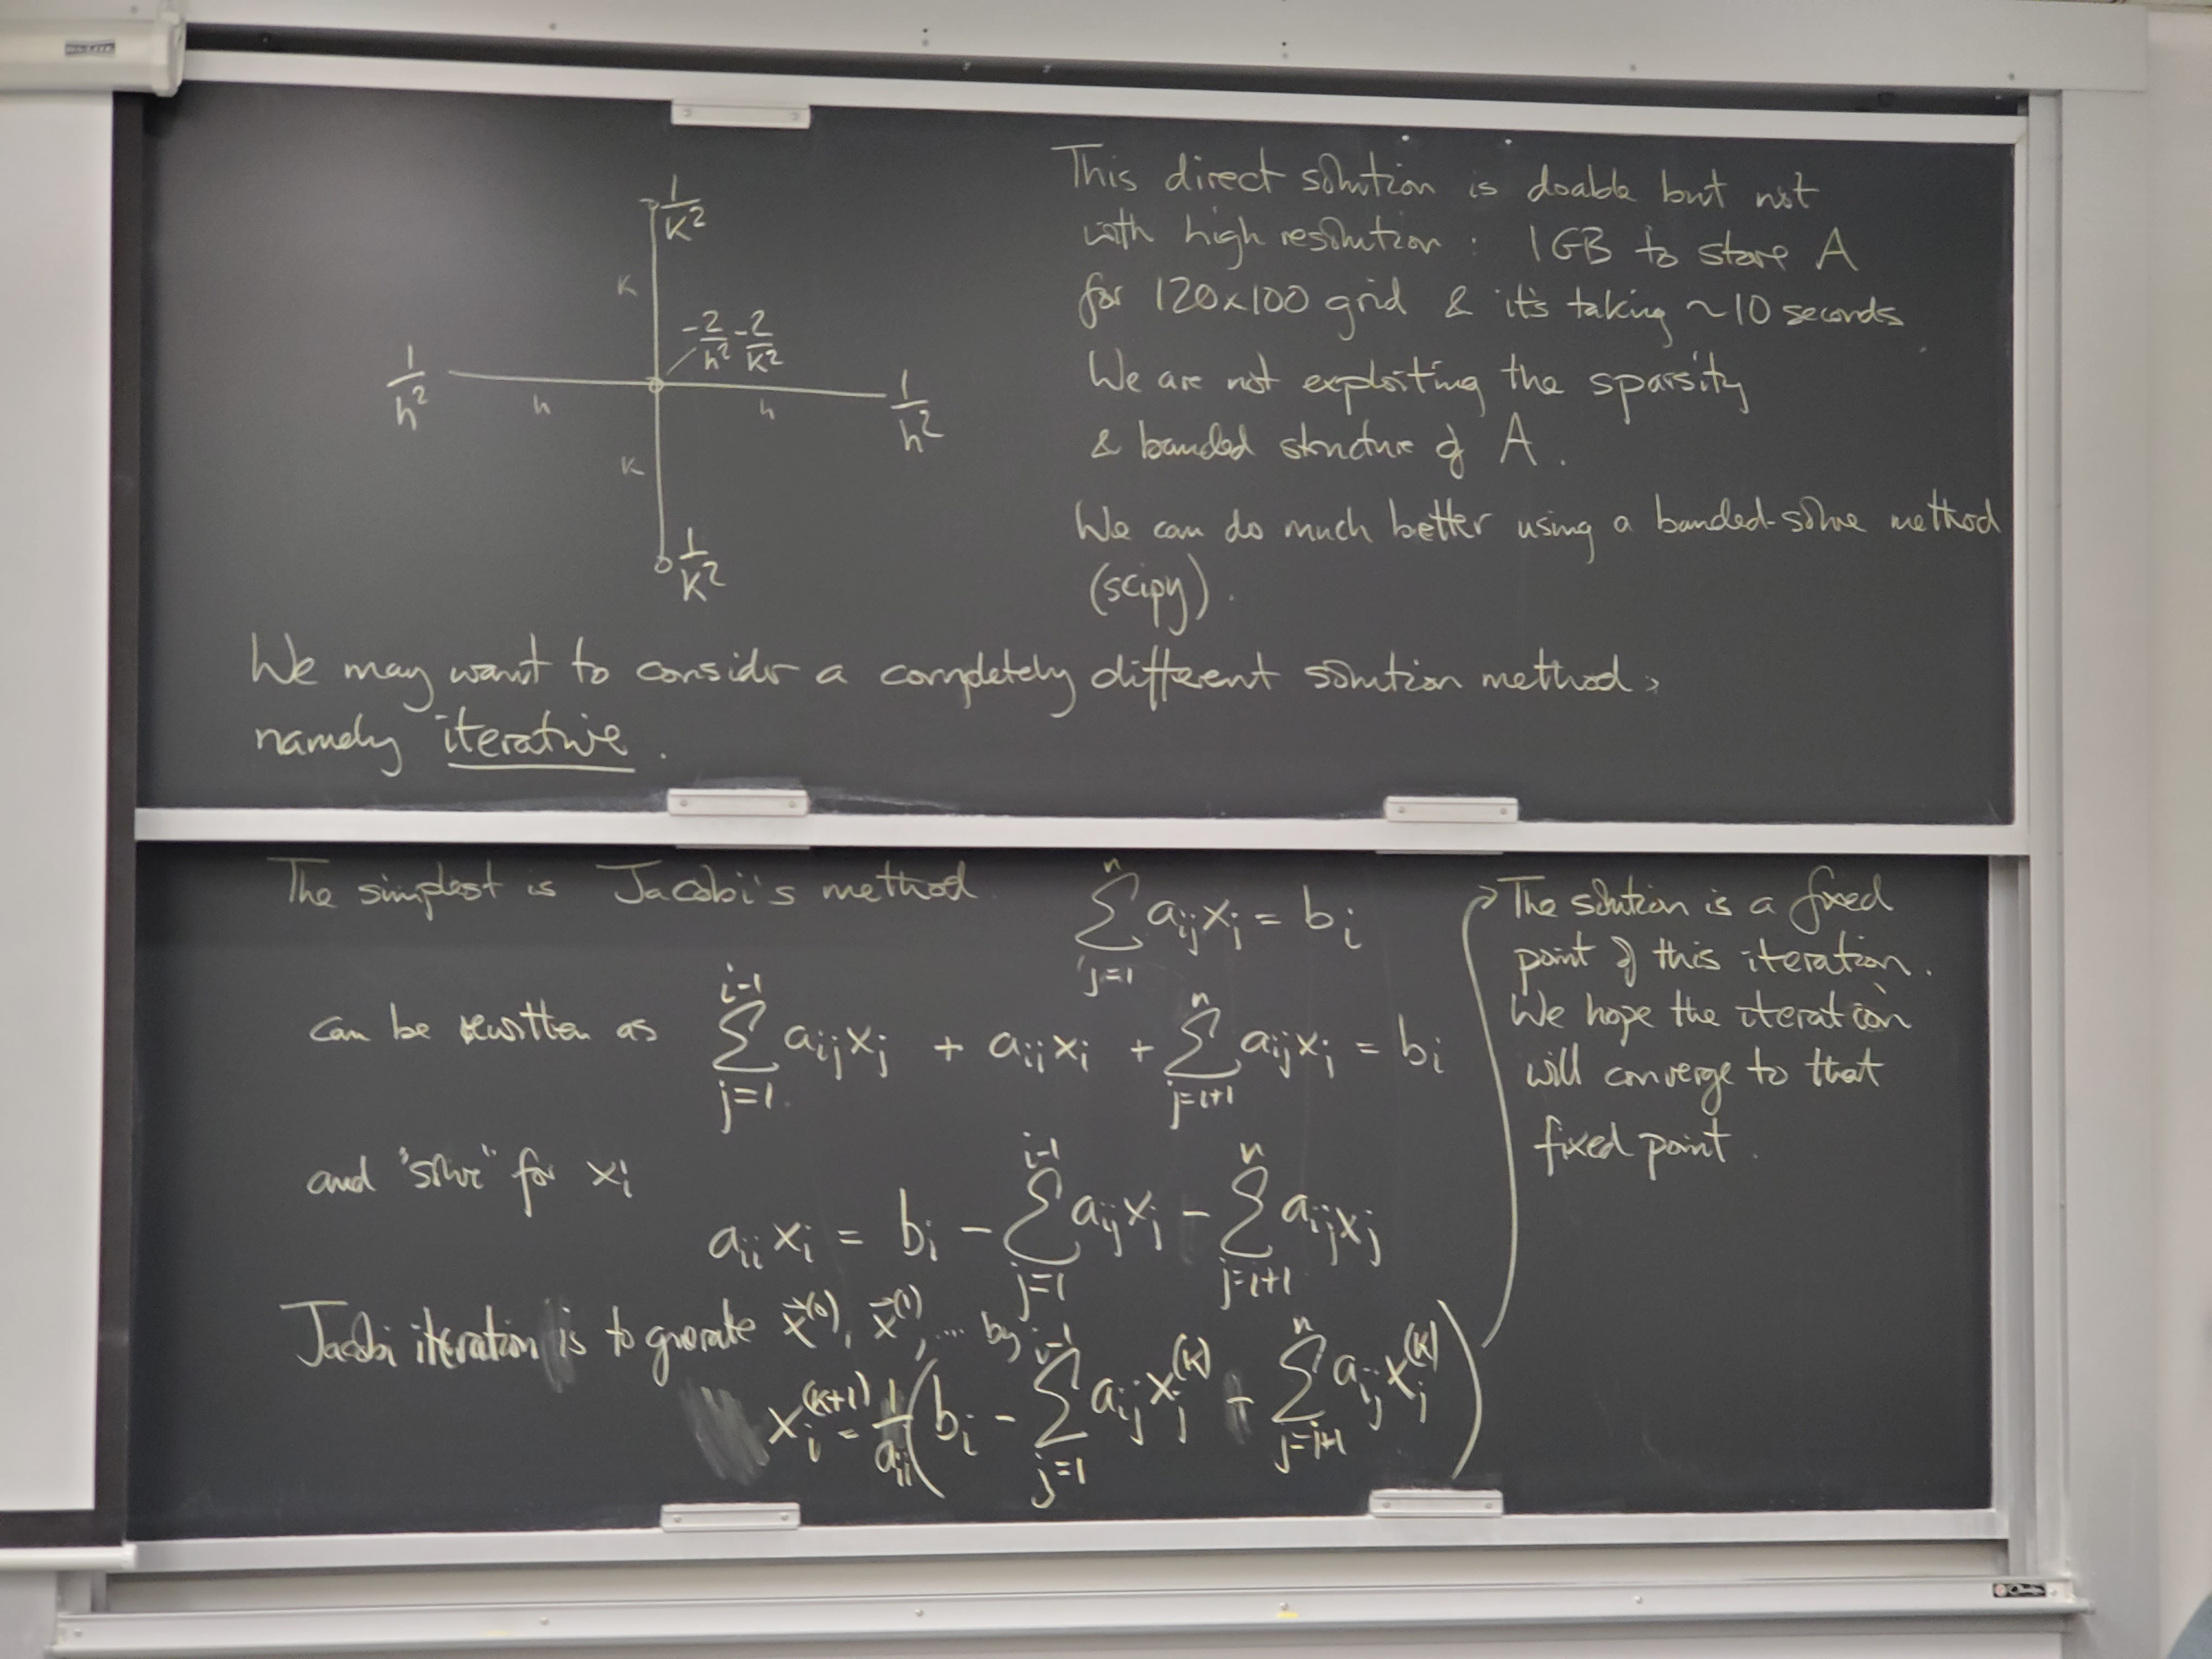 1/K²
K
-2/h² -2/K²
1/h²
h
h
1/h²
K
1/K²
This direct solution is doable but not
with high resolution : 1GB to store A
for 120x100 grid & it's taking ~10 seconds
We are not exploiting the sparsity
& banded structure of A.
We can do much better using a banded-solve method
(scipy).
We may want to consider a completely different solution method,
namely iterative.
The simplest is Jacobi's method
∑_{j=1}^{n} a_{ij}x_j = b_i
can be rewritten as ∑_{j=1}^{i-1} a_{ij}x_j + a_{ii}x_i + ∑_{j=i+1}^{n} a_{ij}x_j = b_i
and "solve" for x_i
a_{ii} x_i = b_i - ∑_{j=1}^{i-1} a_{ij}x_j - ∑_{j=i+1}^{n} a_{ij}x_j
Jacobi iteration is to generate x⃗^{(0)}, x⃗^{(1)}, ... by
x_i^{(K+1)} = 1/a_{ii} (b_i - ∑_{j=1}^{i-1} a_{ij}x_j^{(K)} - ∑_{j=i+1}^{n} a_{ij}x_j^{(K)})
The solution is a fixed
point of this iteration.
We hope the iteration
will converge to that
fixed point.